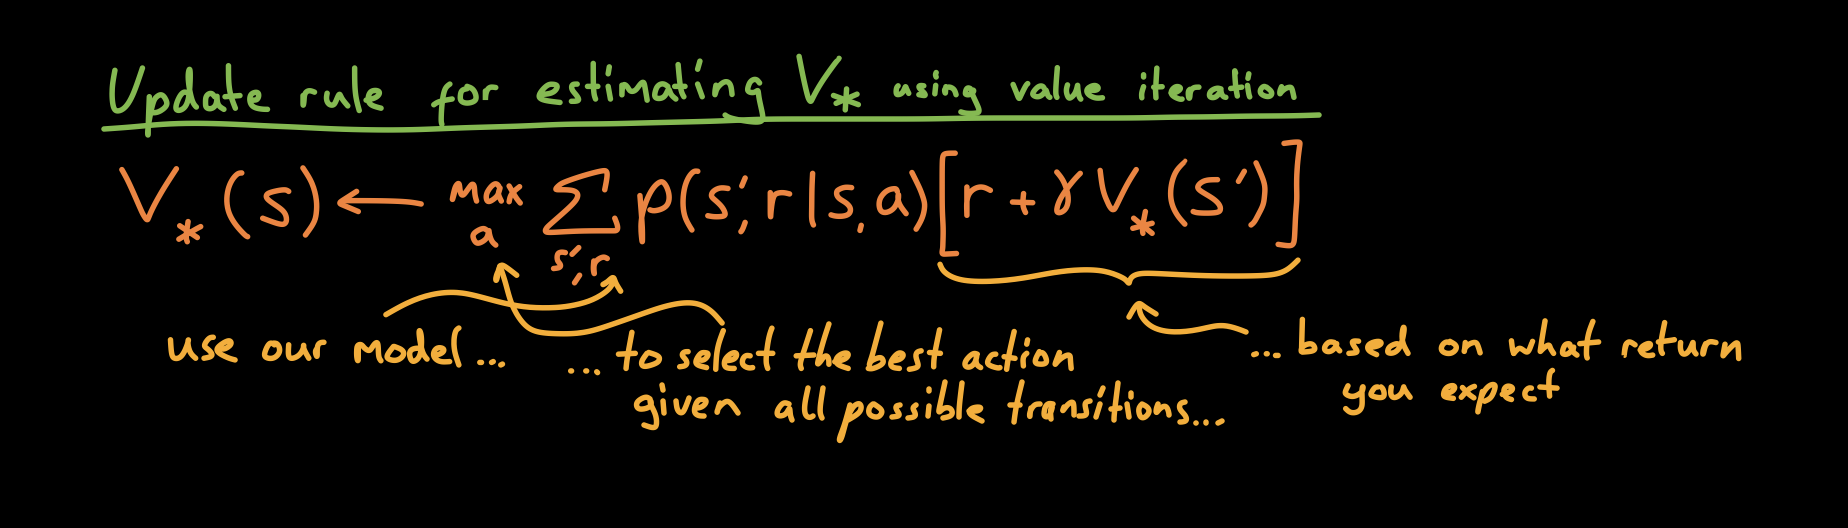 Update rule for estimating V* using value iteration
V*(s) ← max a Σ s', r p(s', r | s, a) [r + γ V*(s')]
use our model...
...to select the best action
given all possible transitions...
...based on what return
you expect